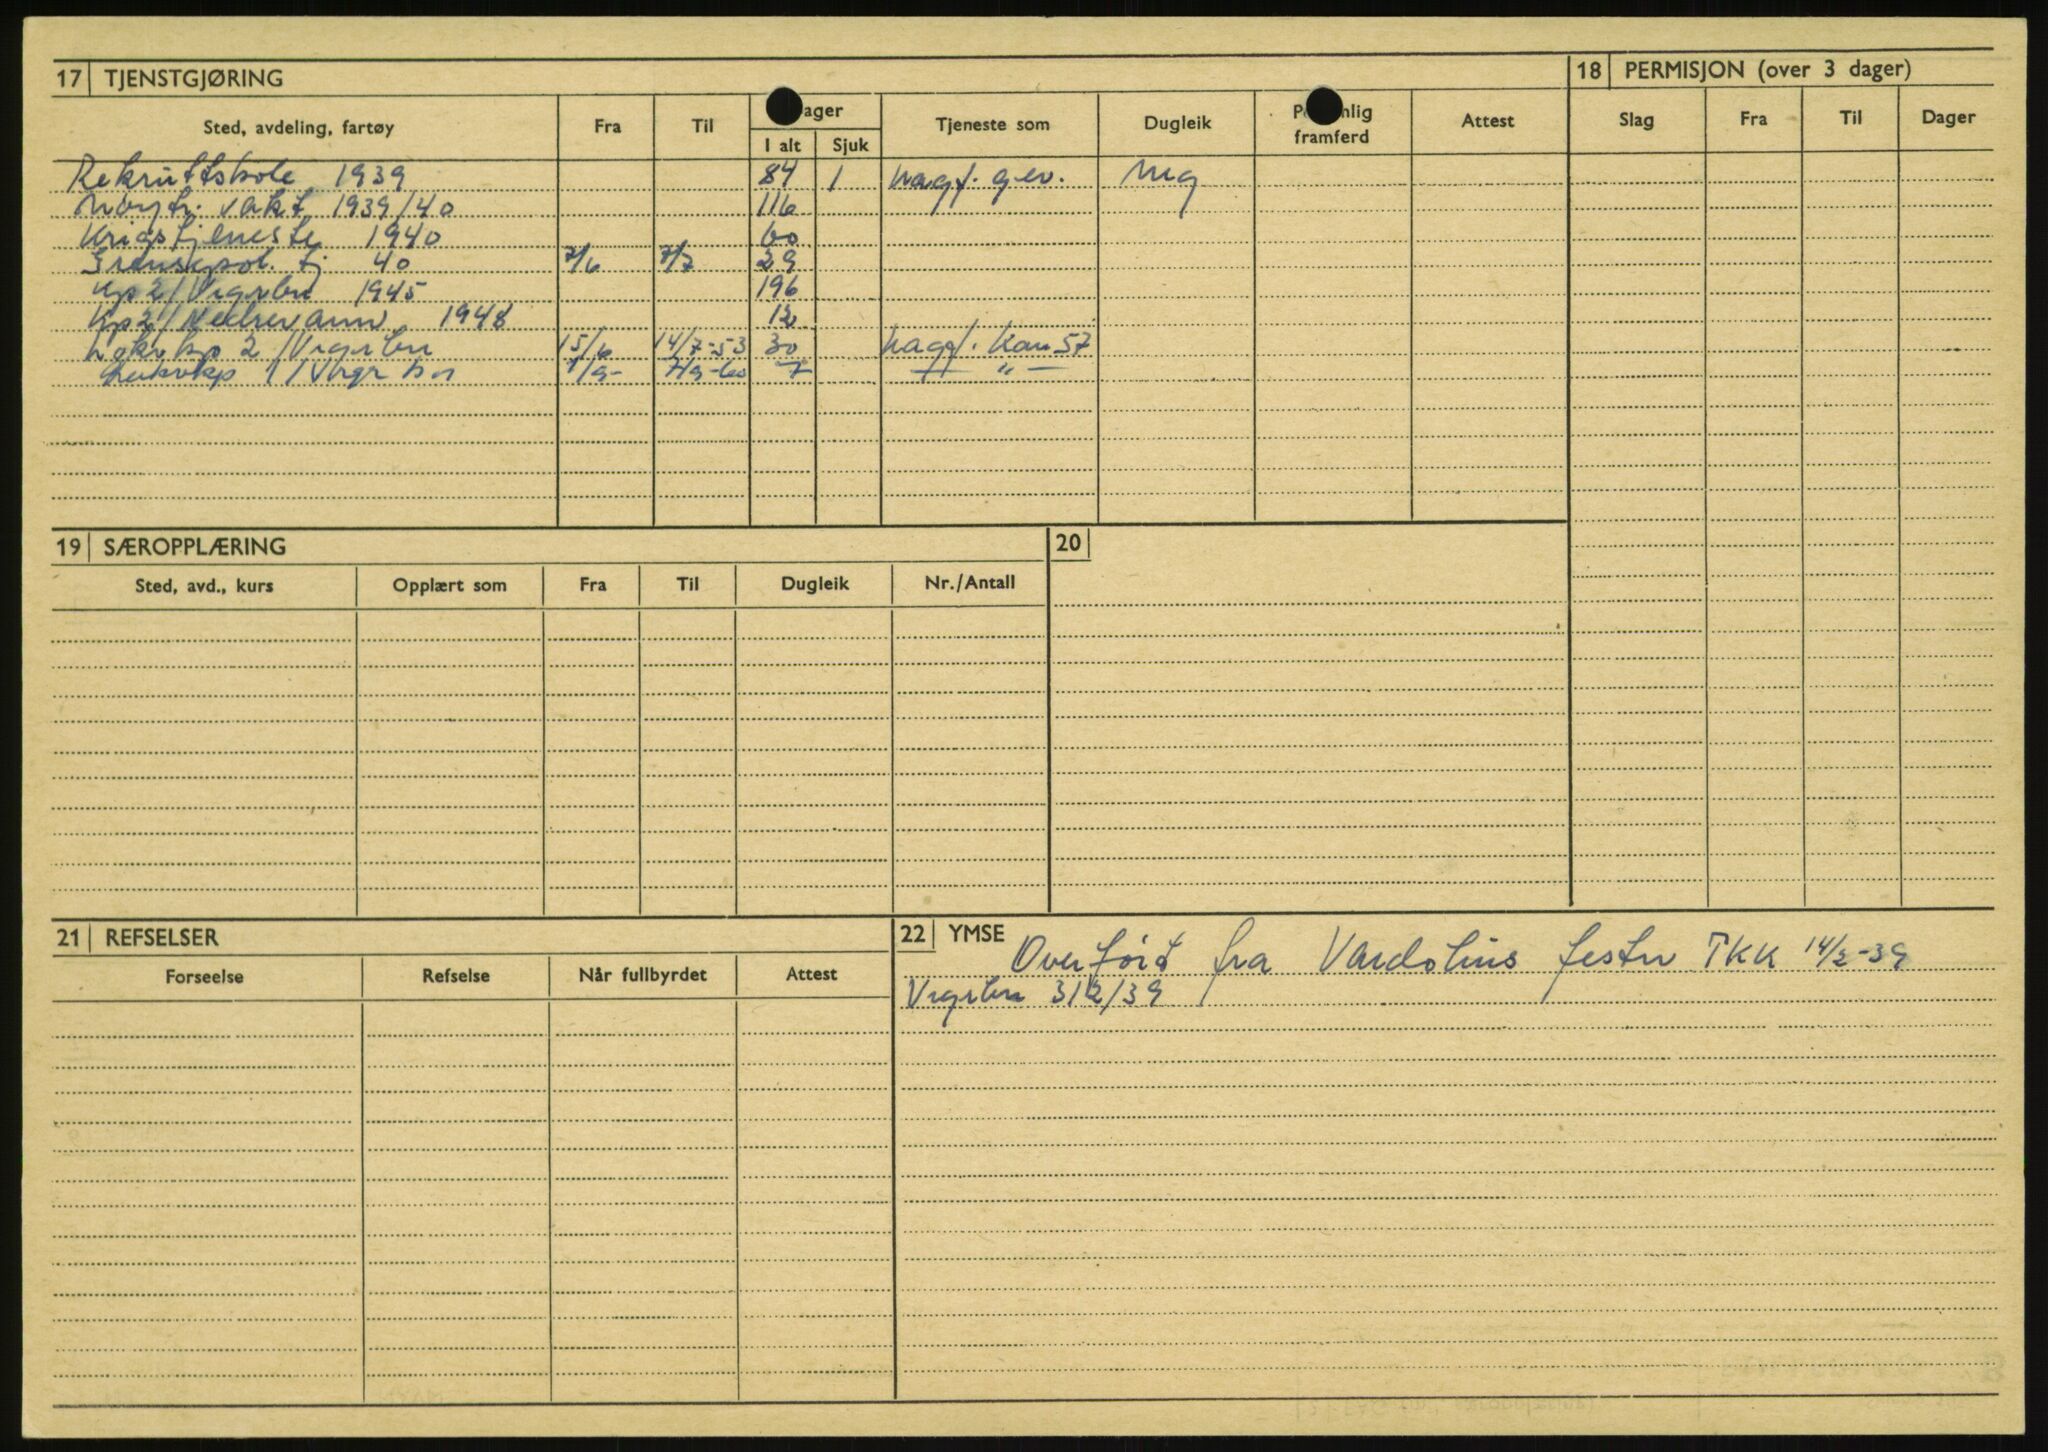 17 TJENSTGJØRING
18 PERMISJON (over 3 dager)
Sted, avdeling, fartøy Fra Til ager Tjeneste som Dugleik P nlig framferd Attest
I alt Sjuk
Slag Fra Til Dager
Rekruttskole 1939 84 1 lagf. gev. Mg
Nøytr. vakt 1939/40 116
Krigstjeneste 1940 60
Grensepol. tj 40 7/6 7/7 29
Kp 2/Vrgrbn 1945 196
Kp 2/ 1948 12
Lokv kp 2/Vrgrbn 15/6 14/7-53 30 lagf. Kan 57
Lokvkp 1/Vrgrbn 1/9- 7/9-60 7 — " —
19 SÆROPPLÆRING
20
Sted, avd., kurs Opplært som Fra Til Dugleik Nr./Antall
21 REFSELSER
Forseelse Refselse Når fullbyrdet Attest
22 YMSE
Overført fra Vardøhus festn TKK 14/2-39
Vrgrbn 312/39